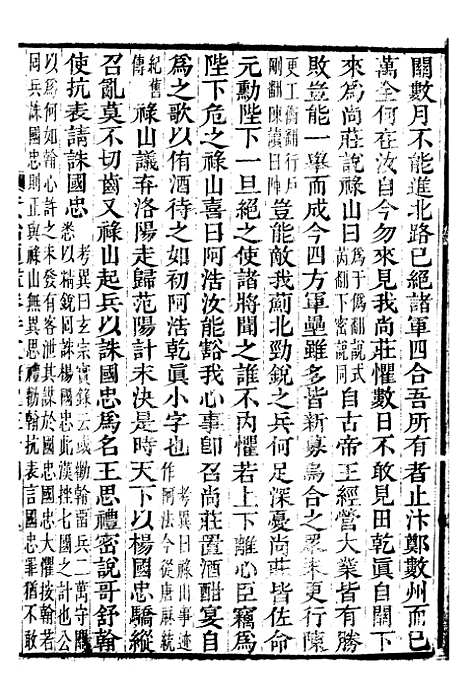 關數月不能進北路已絕諸軍四合吾所有者止汴鄭數州而已
萬全何在汝自今勿來見我尚莊懼數日不敢見田乾真自關下
來為尚莊說祿山曰為于偽翻說式芮翻下密說同自古帝王經營大業皆有勝
敗豈能一舉而成今四方軍壘雖多皆新募烏合之衆未更行陳
更工衡翻行戶剛翻陳讀曰陣豈能敵我薊北勁銳之兵何足深憂尚莊皆佐命
元勳陛下一旦絕之使諸將聞之誰不內懼若上下離心臣竊為
陛下危之祿山喜曰阿浩汝能豁我心事卽召尚莊置酒酣宴自
為之歌以侑酒待之如初阿浩乾眞小字也考異曰祿山事迹作阿法今從唐厤統
紀舊傳祿山議弃洛陽走歸范陽計未決是時天下以楊國忠驕縱
召亂莫不切齒又祿山起兵以誅國忠為名王思禮密說哥舒翰
使抗表請誅國忠考異曰玄宗實錄云或勸翰留兵二萬守關悉以精銳囘誅楊國忠此漢挫七國之計也公
以為何如翰心許之未發有客泄其謀於國忠國忠大懼按翰若囘兵誅國忠則正與祿山無異思禮勸翰抗表言國忠罪猶不敢